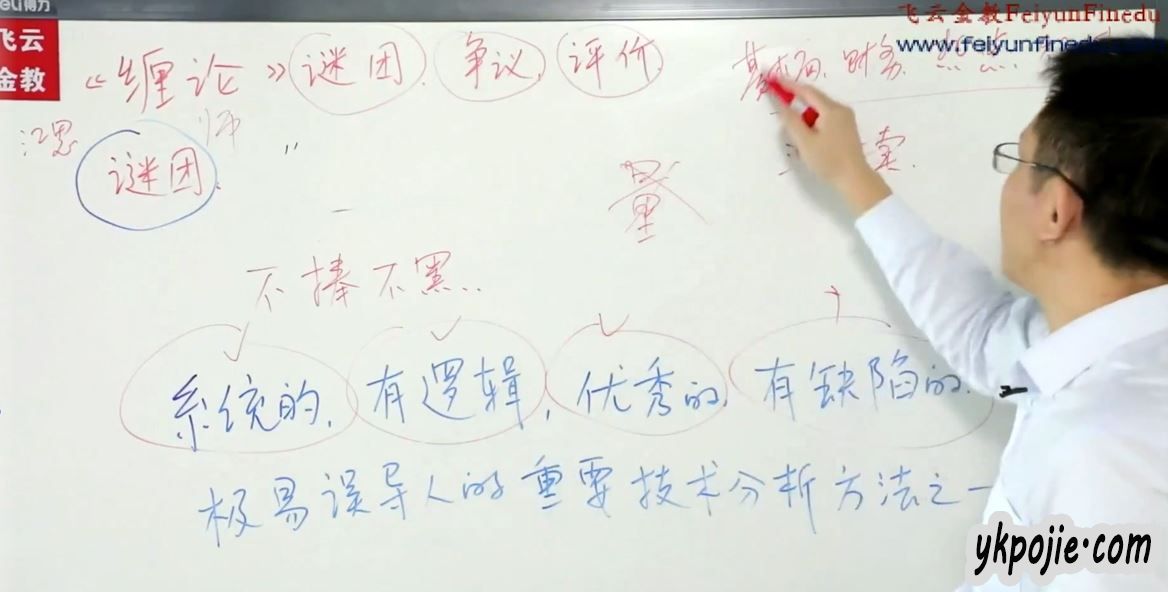 deli得力
飞云金教FeiyunFinedu
飞云
金教
www.feiyunfinedu
《缠论》谜团、争议、评价
基本面、财务、热点
江恩
师
谜团、
量
卖.
不捧不黑..
系统的、有逻辑、优秀的、有缺陷的、
极易误导人的重要技术分析方法之一
ykpojie·com